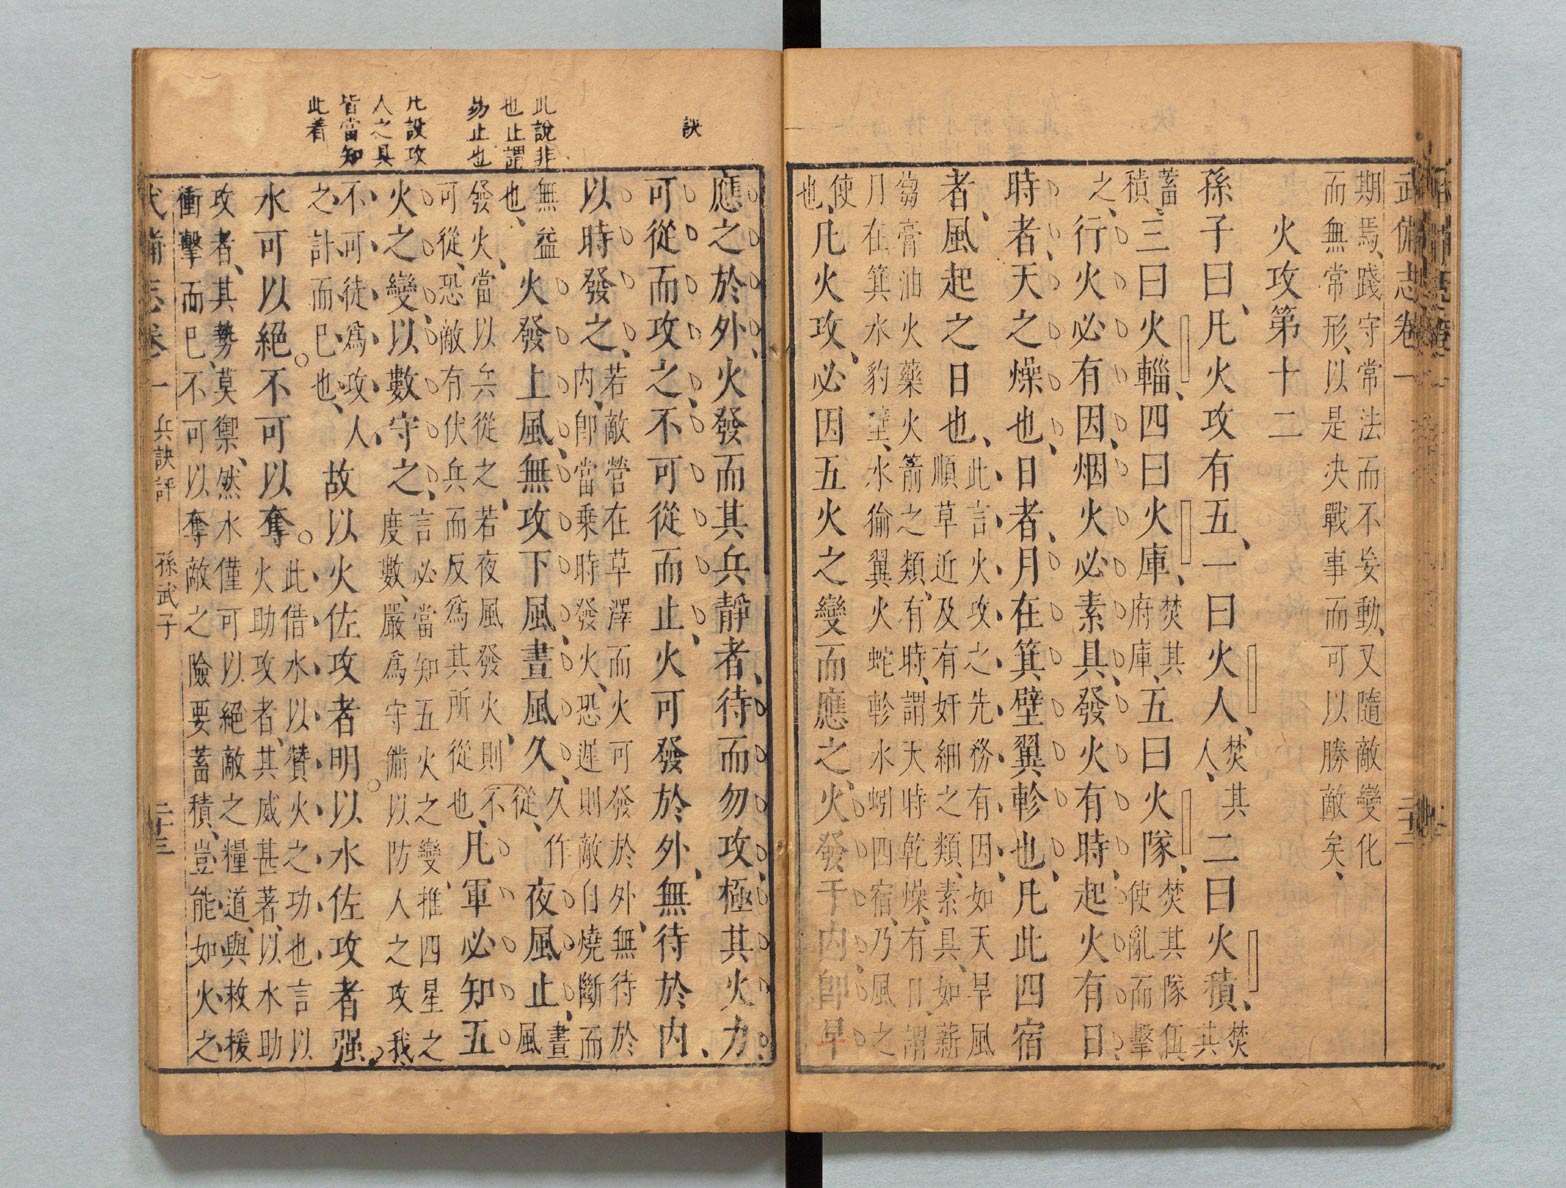 武備志卷一 二十二
期焉、踐守常法而不妄動、又隨敵變化
而無常形、以是決戰事而可以勝敵矣、
火攻第十二
孫子曰、凡火攻有五、一曰火人、焚其人、二曰火積、焚其
蓄積、三曰火輜、四曰火庫、焚其府庫、五曰火隊、焚其隊伍、使亂而擊
之、行火必有因、烟火必素具、發火有時、起火有日、
時者、天之燥也、日者、月在箕壁翼軫也、凡此四宿
者、風起之日也、此言火攻之先務有因、如天旱風順草近及有奸細之類、素具、如薪
芻膏油火藥火箭之類、有時、謂天時乾燥、有日、謂
月在箕水豹壁水㺄翼火蛇軫水蚓四宿、乃風之
使也、凡火攻、必因五火之變而應之、火發于内、即早
訣
應之於外、火發而其兵靜者、待而勿攻、極其火力、
可從而攻之、不可從而止、火可發於外、無待於内、
以時發之、若敵營在草澤而火可發於外、無待於内、即當乘時發火、恐遲則敵自燒斷而
此說非
也止謂
易止也
無益也、火發上風、無攻下風、晝風久、久作從、夜風止、晝風
發火、當以兵從之、若夜風發火、則不可從、恐敵有伏兵而反為其所從也、凡軍必知五
凡設攻
人之具
皆當知
此着
火之變、以數守之、言必當知五火之變、推四星之度數、嚴為守備以防人之攻我、
不可徒為攻人之計而已也、故以火佐攻者明、以水佐攻者强、
水可以絕、不可以奪、此借水以贊火之功也、言以火助攻者、其威甚著、以水助
攻者、其勢莫禦、然水僅可以絕敵之糧道、與救援
衝擊而已、不可以奪敵之險要蓄積、豈能如火之
武備志卷一 兵訣評 孫武子 二十三